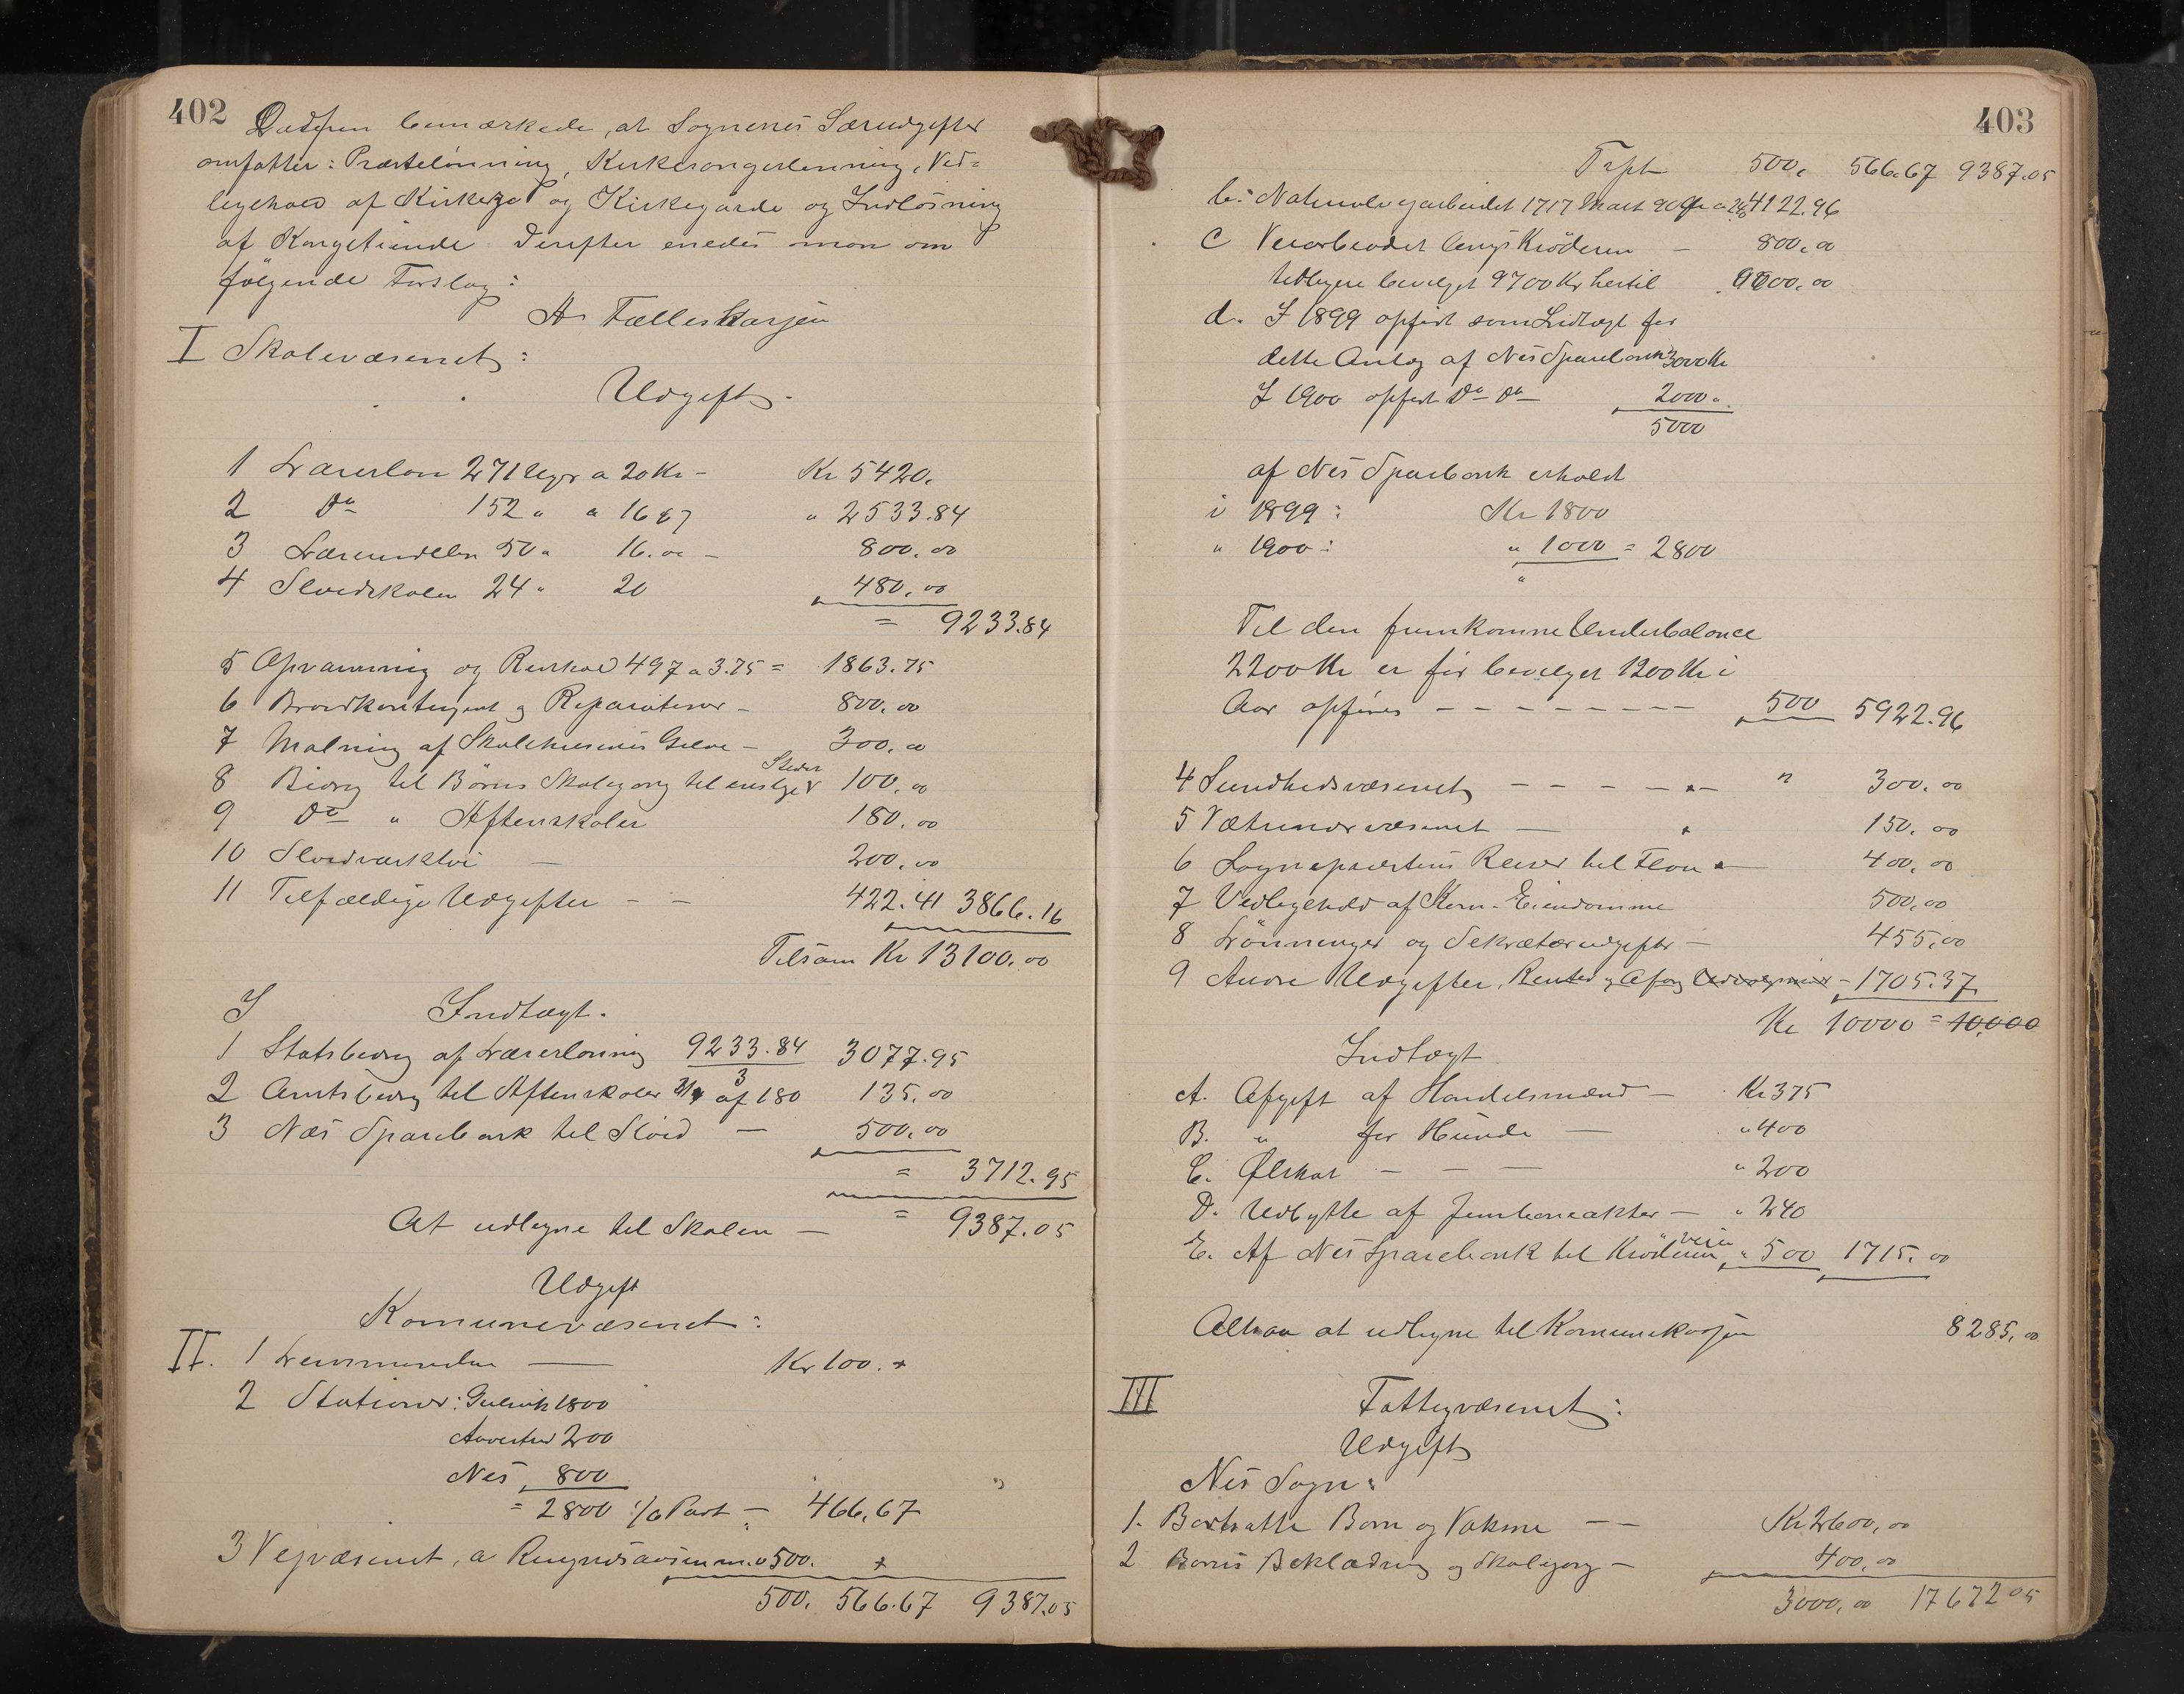 402
bemærkede, at Sognenes Særudgifter
omfatter: Præstelønning, Kirkesangerlønning, Ved=
ligehold af Kirker og Kirkegårde og Indløsning
af Kongetiende. Derefter enedes man om
følgende Forslag:
A. Fælleskassen
I Skolevæsenet:
Udgift.
1 Lærerløn 271 Uger a 20 Kr - Kr 5420.
2 Do 152 " a 1667 " 2533.84
3 50 " 16.00 - 800.00
4 Sløidskolen 24 " 20 480.00
= 9233.84
5 Opvarmning og Renhold 497 a 3.75 = 1863.75
6 Brandkontingent og Reparationer - 800.00
7 Maling af Skolehusenes Gulve - 300.00
8 Bidrag til Børns Skolegang til enslige Steder 100.00
9 Do " Aftenskoler 180.00
10 Sløidværktøi - 200.00
11 Tilfældige Udgifter - - 422.41 3866.16
Tilsam Kr 13100.00
I Indtægt.
1 Statsbidrag af Lærerlønning 9233.84 3077.95
3
2 Amtsbidrag til Aftenskoler 3/4 af 180 135.00
3 Næs Sparebank til Sløid - 500.00
= 3712.95
At udligne til Skolen - = 9387.05
Udgift
Komunevæsenet:
II. 1 - Kr 100. +
2 Stationer: Gulsvik 1800
Aavestrud 200
Nes 800
= 2800 1/6 Part - 466.67
3 Vejvæsenet, a m.v 500. +
500. 566.67 9387.05
403
Trpt 500. 566.67 9387.05
b: Naturalvejarbeidet 1717 a 24 4122.96
c Veiarbeidet langs Krøderen - 800.00
tidligere bevilget 9700 Kr hertil
d. I 1899 opført som Indtægt for
dette Anlæg af Nes Sparebank 3000 Kr
I 1900 opført Do Do 2000 "
5000
af Nes Sparebank erholdt
i 1899: Kr 1800
" 1900: " 1000 = 2800
"
Til den fremkomne Underbalance
2200 Kr er før bevilget 1200 Kr i
Aar opføres - - - - - - - - 500 5922.96
4 Sundhedsvæsenet - - - - " - " 300.00
5 - " 150.00
6 Sognepræstens Reiser til Flaa " - 400.00
7 Vedligehold af Kom. Eiendomme 500.00
8 Lønninger og Sekretærudgifter - 455.00
9 Andre Udgifter, Renter og Afdrag - 1705.37
Kr 10000 = 10,000
Indtægt
A. Afgift af Handelsmænd - Kr 375
B. " for Hunde - " 400
C. Ølskat - - - " 200
D. Udbytte af Jernbaneakter - " 240
E. Af Nes Sparebank til Krøderveien " 500 1715.00
Altsaa at udligne til Komunekassen 8285.00
III Fattigvæsenet:
Udgift
Nes Sogn:
1. Bortsatte Børn og Voksne - - Kr 2600.00
2 Børns Beklædning og Skolegang - 400.00
3000.00 17672 05